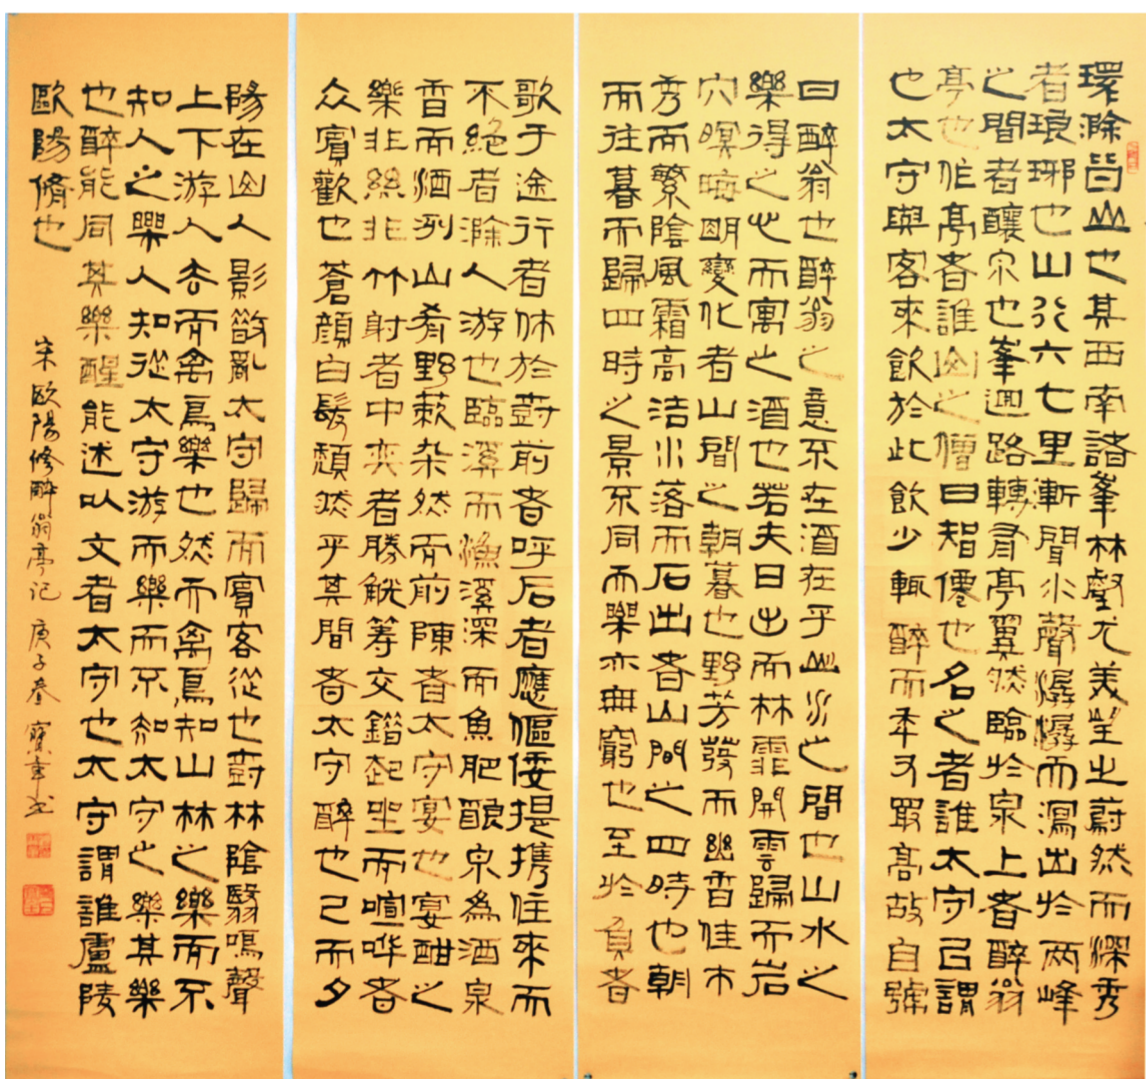 環滁皆山也其西南諸峯林壑尤美望之蔚然而深秀
者琅琊也山行六七里漸聞水聲潺潺而瀉出於兩峰
之間者釀泉也峯迴路轉有亭翼然臨於泉上者醉翁
亭也作亭者誰山之僧曰智僊也名之者誰太守自謂
也太守與客來飲於此飲少輒醉而年又最高故自號
曰醉翁也醉翁之意不在酒在乎山水之間也山水之
樂得之心而寓之酒也若夫日出而林霏開雲歸而岩
穴暝晦明變化者山間之朝暮也野芳發而幽香佳木
秀而繁陰風霜高洁水落而石出者山間之四時也朝
而往暮而歸四時之景不同而樂亦無窮也至於負者
歌于途行者休於樹前者呼后者應傴僂提携往來而
不絕者滁人游也臨溪而漁溪深而魚肥釀泉為酒泉
香而酒洌山肴野蔌杂然而前陳者太守宴也宴酣之
樂非絲非竹射者中奕者勝觥筹交錯起坐而喧哗者
众賓歡也蒼顏白髮頹然乎其間者太守醉也已而夕
陽在山人影散亂太守歸而賓客從也樹林陰翳鳴聲
上下游人去而禽鳥樂也然而禽鳥知山林之樂而不
知人之樂人知從太守游而樂而不知太守之樂其樂
也醉能同其樂醒能述以文者太守也太守謂誰廬陵
歐陽脩也
宋歐陽修醉翁亭记 庚子春 寶章书